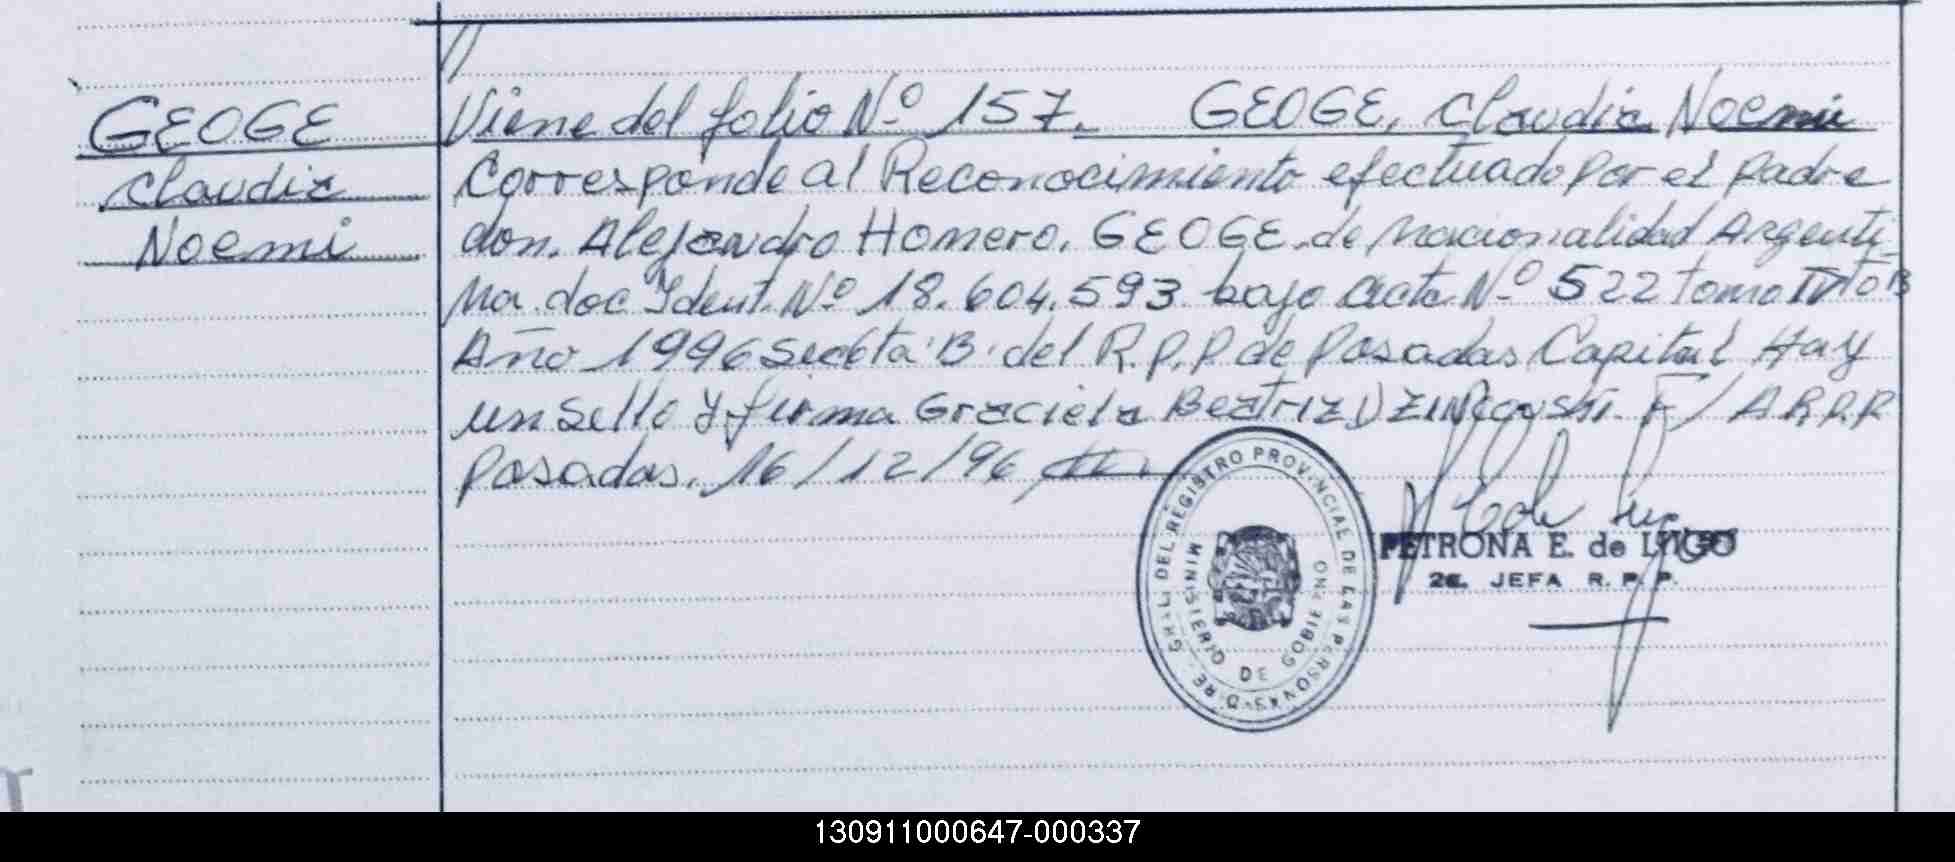 GEOGE
Claudia
Noemi
//
Viene del folio Nº 157. GEOGE, Claudia Noemi
Corresponde al Reconocimiento efectuado por el padre
don. Alejandro Homero. GEOGE. de nacionalidad Argenti-
na. doc Ident. Nº 18.604.593 bajo acta Nº 522 tomo
Año 1996 "B" del R.P.P de Posadas Capital Hay
un Sello y firma Graciela Beatriz F/ A.R.P.P
Posadas. 16/12/96
DIRE. GRAL. DEL REGISTRO PROVINCIAL DE LAS PERSONAS
MINISTERIO DE GOBIERNO
PETRONA E. de LUGO
2a. JEFA R. P. P.
130911000647-000337